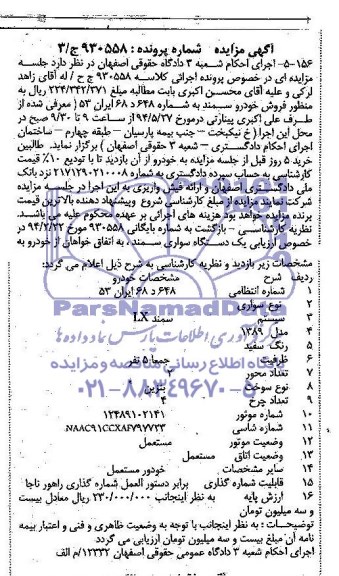 آگهی مزایده شماره پرونده : ۹۳۰۵۵۸ ج/۳
۵-۱۵۶- اجرای احکام شعبه ۳ دادگاه حقوقی اصفهان در نظر دارد جلسه
مزایده ای در خصوص پرونده اجرائی کلاسه ۹۳۰۵۵۸ ج ح / له آقای زاهد
لرکی و علیه آقای محسن اکبری بابت مطالبه مبلغ ۲۲۴/۳۴۲/۳۷۱ ریال به
منظور فروش خودرو سمند به شماره ۶۴۸ د ۶۸ ایران ۵۳ ( معرفی شده از
طرف علی اکبری پینارتی درمورخ ۹۴/۵/۲۷ از ساعت ۹ تا ۹/۳۰ صبح در
محل این اجرا ( خ نیکبخت – جنب بیمه پارسیان – طبقه چهارم – ساختمان
اجرای احکام دادگستری – شعبه ۳ حقوقی اصفهان ) برگزار نماید. طالبین
خرید ۵ روز قبل از جلسه مزایده به خودرو از آن بازدید تا با تودیع ۱۰٪ قیمت
کارشناسی به حساب سپرده دادگستری به شماره ۲۱۷۱۲۹۰۲۱۰۰۰۸ نزد بانک
ملی دادگستری اصفهان و ارائه فیش واریزی به این اجرا در جلسه مزایده
شرکت نمایند مزایده از مبلغ کارشناسی شروع وپیشنهاد دهنده بالاترین قیمت
برنده مزایده خواهد بود هزینه های اجرائی بر عهده محکوم علیه می باشد.
نظریه کارشناسی – بازگشت به شماره بایگانی ۹۳۰۵۵۸ مورخ ۹۴/۲/۲۲ در
خصوص ارزیابی یک دستگاه سواری سمند ، به اتفاق خواهان از خودرو به
مشخصات زیر بازدید و نظریه کارشناسی به شرح ذیل اعلام می گردد:
ردیف شرح مشخصات خودرو
۱ شماره انتظامی ۶۴۸ د ۶۸ ایران ۵۳
۲ نوع سواری
۳ سیستم سمند LX
۴ مدل ۱۳۸۹
۵ رنگ سفید
۶ ظرفیت جمعا ۵ نفر
۷ تعداد محور ۲
۸ نوع سوخت بنزین
۹ تعداد چرخ ۴
۱۰ شماره موتور ۱۲۴۸۹۱۰۲۱۴۱
۱۱ شماره شاسی
۱۲ وضعیت موتور مستعمل
۱۳ وضعیت اتاق مستعمل
۱۴ سایر مشخصات خودور مستعمل
۱۵ قابلیت شماره گذاری برابر دستور العمل شماره گذاری راهور ناجا
۱۶ ارزش پایه به نظر اینجانب ۲۳۰/۰۰۰/۰۰۰ ریال معادل بیست
و سه میلیون تومان
توضیحات : به نظر اینجانب با توجه به وضعیت ظاهری و فنی و اعتبار بیمه
نامه آن مبلغ بیست و سه میلیون تومان ارزیابی می گردد
اجرای احکام شعبه ۳ دادگاه عمومی حقوقی اصفهان ۱۲۳۳۲/م الف
ParsNamadData
پایگاه اطلاع رسانی مناقصه و مزایده
۰۲۱-۸۸۳۴۹۶۷۰-۵